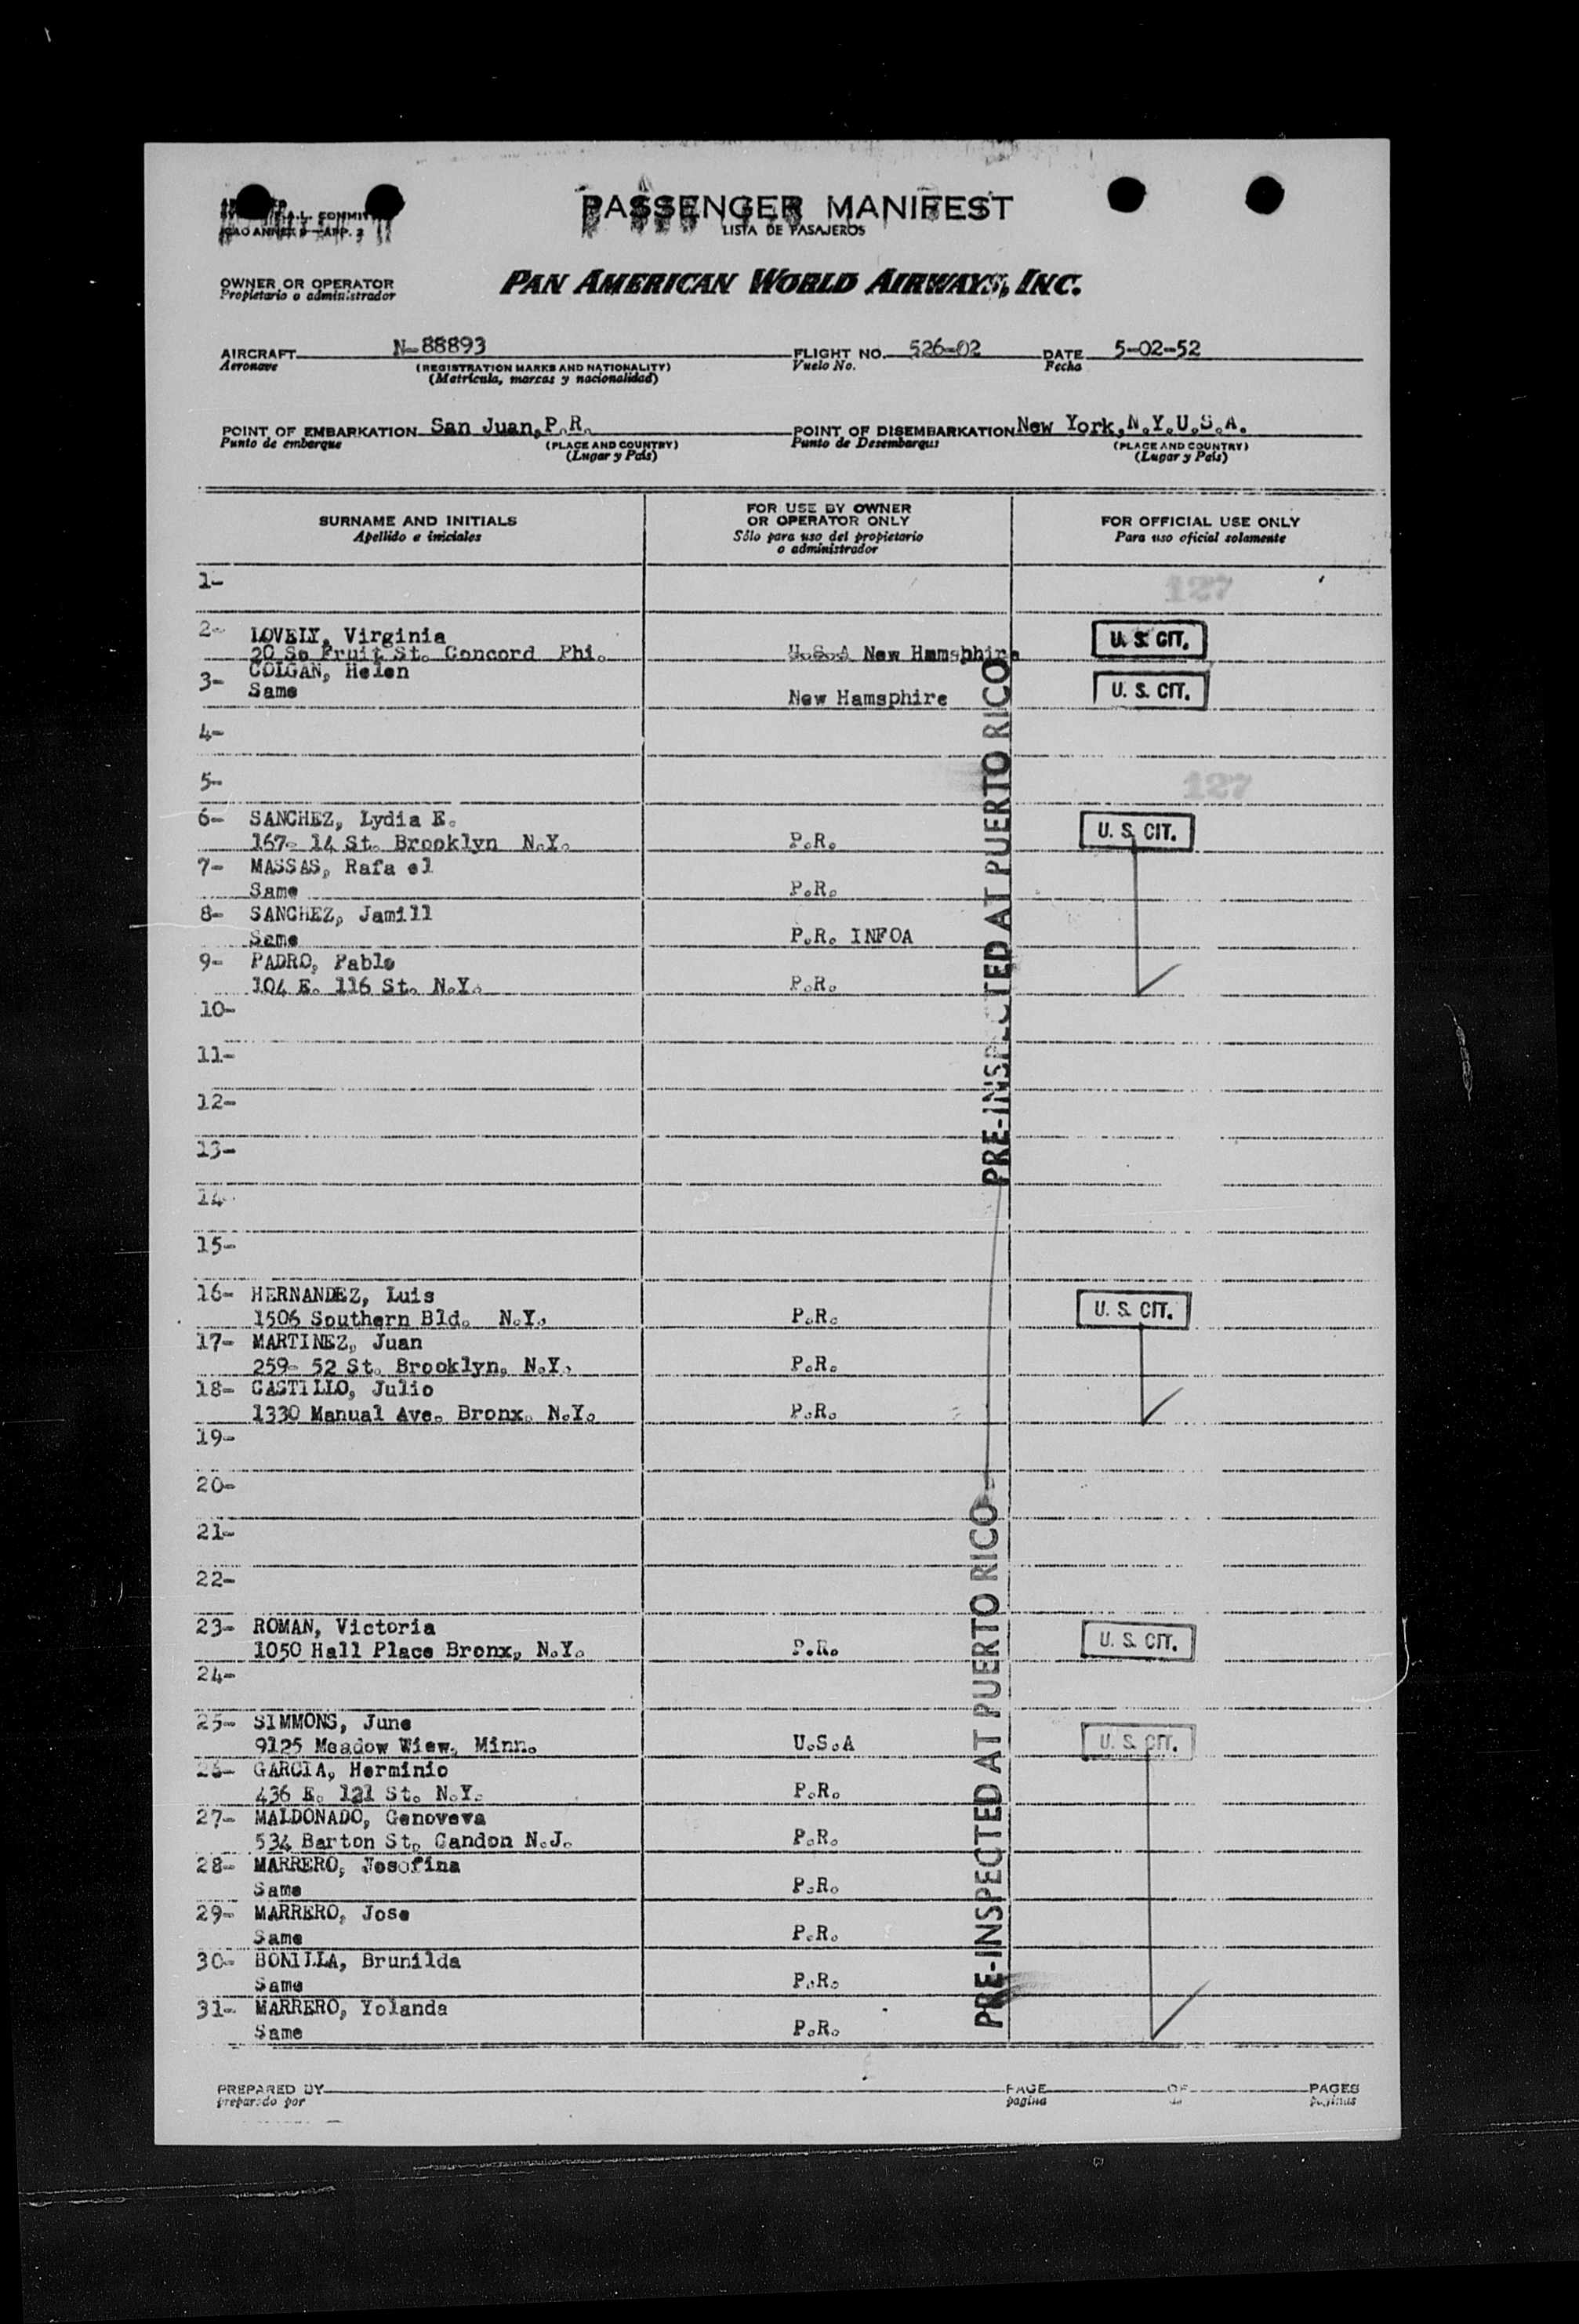 PASSENGER MANIFEST
LISTA DE PASAJEROS
OWNER OR OPERATOR
Propietario o administrador
PAN AMERICAN WORLD AIRWAYS, INC.
AIRCRAFT N-88893 FLIGHT NO. 526-02 DATE 5-02-52
Aeronave (REGISTRATION MARKS AND NATIONALITY) Vuelo No. Fecha
(Matrícula, marcas y nacionalidad)
POINT OF EMBARKATION San Juan, P.R. POINT OF DISEMBARKATION New York, N.Y.U.S.A.
Punto de embarque (PLACE AND COUNTRY) Punto de Desembarque (PLACE AND COUNTRY)
(Lugar y País) (Lugar y País)
SURNAME AND INITIALS
Apellido e iniciales
FOR USE BY OWNER
OR OPERATOR ONLY
Sólo para uso del propietario
o administrador
FOR OFFICIAL USE ONLY
Para uso oficial solamente
1- 127
2- LOVELY, Virginia U. S. CIT.
20 So Fruit St. Concord Phi. U.S.A New Hamsphire
COLGAN, Helen
3- Same New Hamsphire U. S. CIT.
4-
5- 127
6- SANCHEZ, Lydia E. U. S. CIT.
167- 14 St. Brooklyn N.Y. P.R.
7- MASSAS, Rafa el
Same P.R.
8- SANCHEZ, Jamill
Same P.R. INFOA
9- PADRO, Pablo
104 E. 116 St. N.Y. P.R.
10-
11-
12-
13-
14-
15-
16- HERNANDEZ, Luis U. S. CIT.
1506 Southern Bld. N.Y. P.R.
17- MARTINEZ, Juan
259- 52 St. Brooklyn, N.Y. P.R.
18- CASTILLO, Julio
1330 Manual Ave. Bronx. N.Y. P.R.
19-
20-
21-
22-
23- ROMAN, Victoria U. S. CIT.
1050 Hall Place Bronx, N.Y. P.R.
24-
25- SIMMONS, June
9125 Meadow Wiew, Minn. U.S.A U. S. CIT.
26- GARCIA, Herminio
436 E. 121 St. N.Y. P.R.
27- MALDONADO, Genoveva
534 Barton St, Candon N.J. P.R.
28- MARRERO, Josofina
Same P.R.
29- MARRERO, Jose
Same P.R.
30- BONILLA, Brunilda
Same P.R.
31- MARRERO, Yolanda
Same P.R.
PRE-INSPECTED AT PUERTO RICO
PRE-INSPECTED AT PUERTO RICO
PREPARED BY PAGE OF PAGES
preparado por pagina de paginas